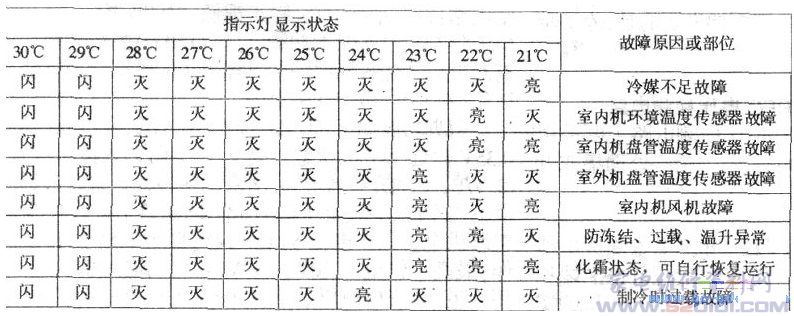 指示灯显示状态 故障原因或部位
30℃ 29℃ 28℃ 27℃ 26℃ 25℃ 24℃ 23℃ 22℃ 21℃
闪 闪 灭 灭 灭 灭 灭 灭 灭 亮 冷媒不足故障
闪 闪 灭 灭 灭 灭 灭 灭 亮 灭 室内机环境温度传感器故障
闪 闪 灭 灭 灭 灭 灭 灭 亮 亮 室内机盘管温度传感器故障
闪 闪 灭 灭 灭 灭 灭 亮 灭 灭 室外机盘管温度传感器故障
闪 闪 灭 灭 灭 灭 灭 亮 灭 亮 室内机风机故障
闪 闪 灭 灭 灭 灭 灭 亮 亮 灭 防冻结、过载、温升异常
闪 闪 灭 灭 灭 灭 灭 亮 亮 亮 化霜状态，可自行恢复运行
闪 闪 灭 灭 灭 灭 亮 灭 灭 灭 制冷时过载故障